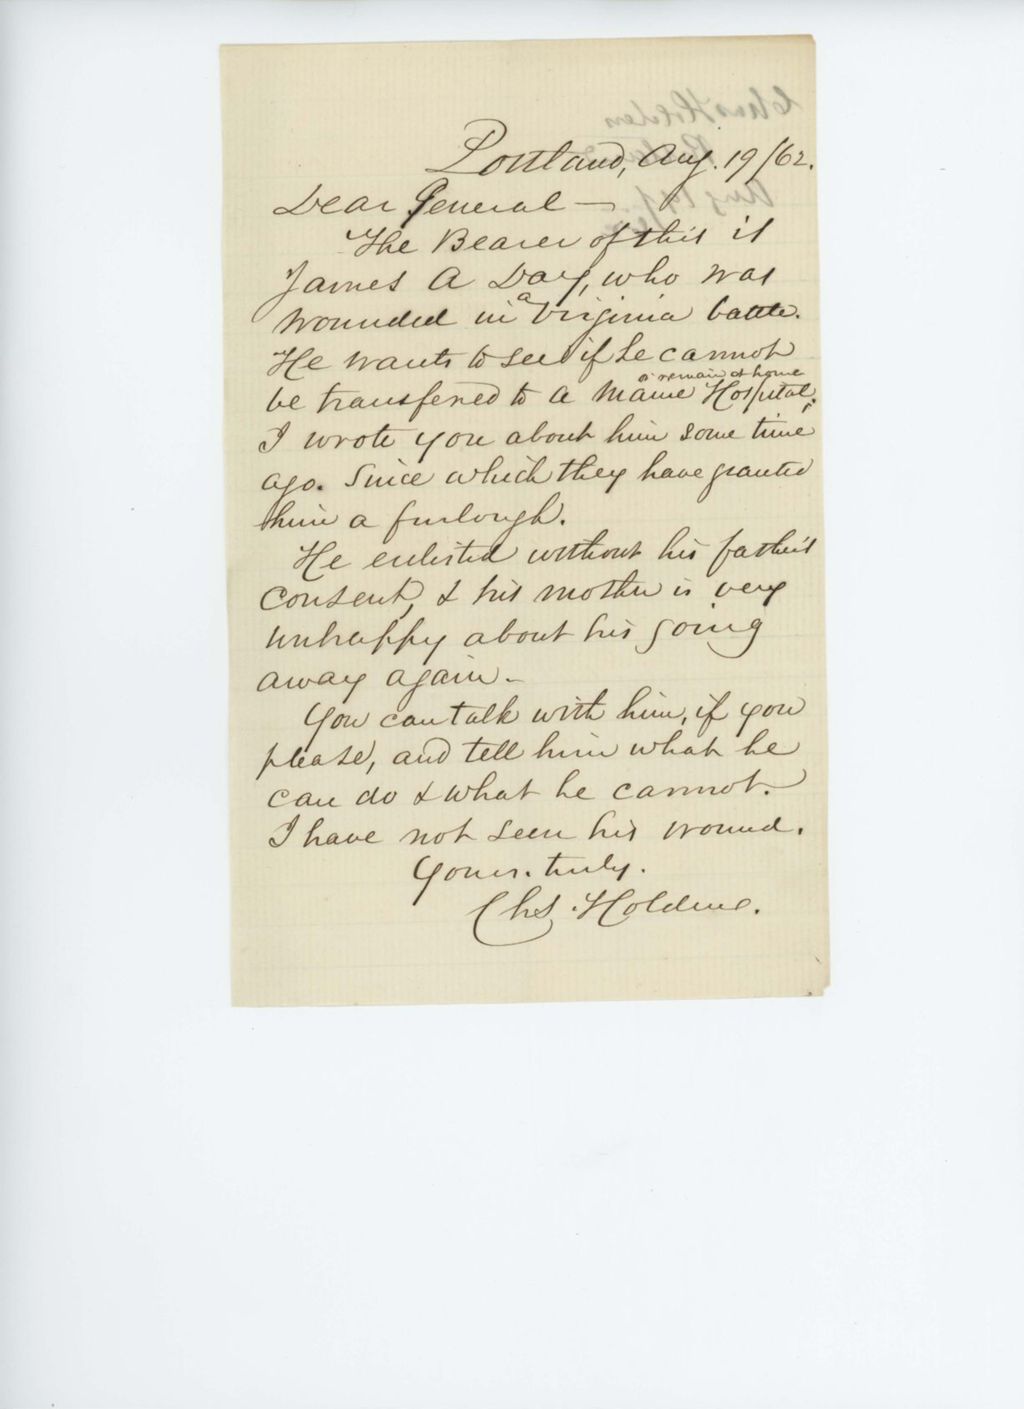 Portland, Aug. 19/62.
Dear General —
The Bearer of this is
James A Day, who was
wounded in a Virginia battle.
He wants to see if he cannot
or remain at home
be transfered to a Maine Hospital.
I wrote you about him some time
ago. Since which they have granted
him a furlough.
He enlisted without his father's
consent, & his mother is very
unhappy about his going
away again.-
You can talk with him, if you
please, and tell him what he
can do & what he cannot.
I have not seen his wound.
Yours truly.
Chs. Holden.